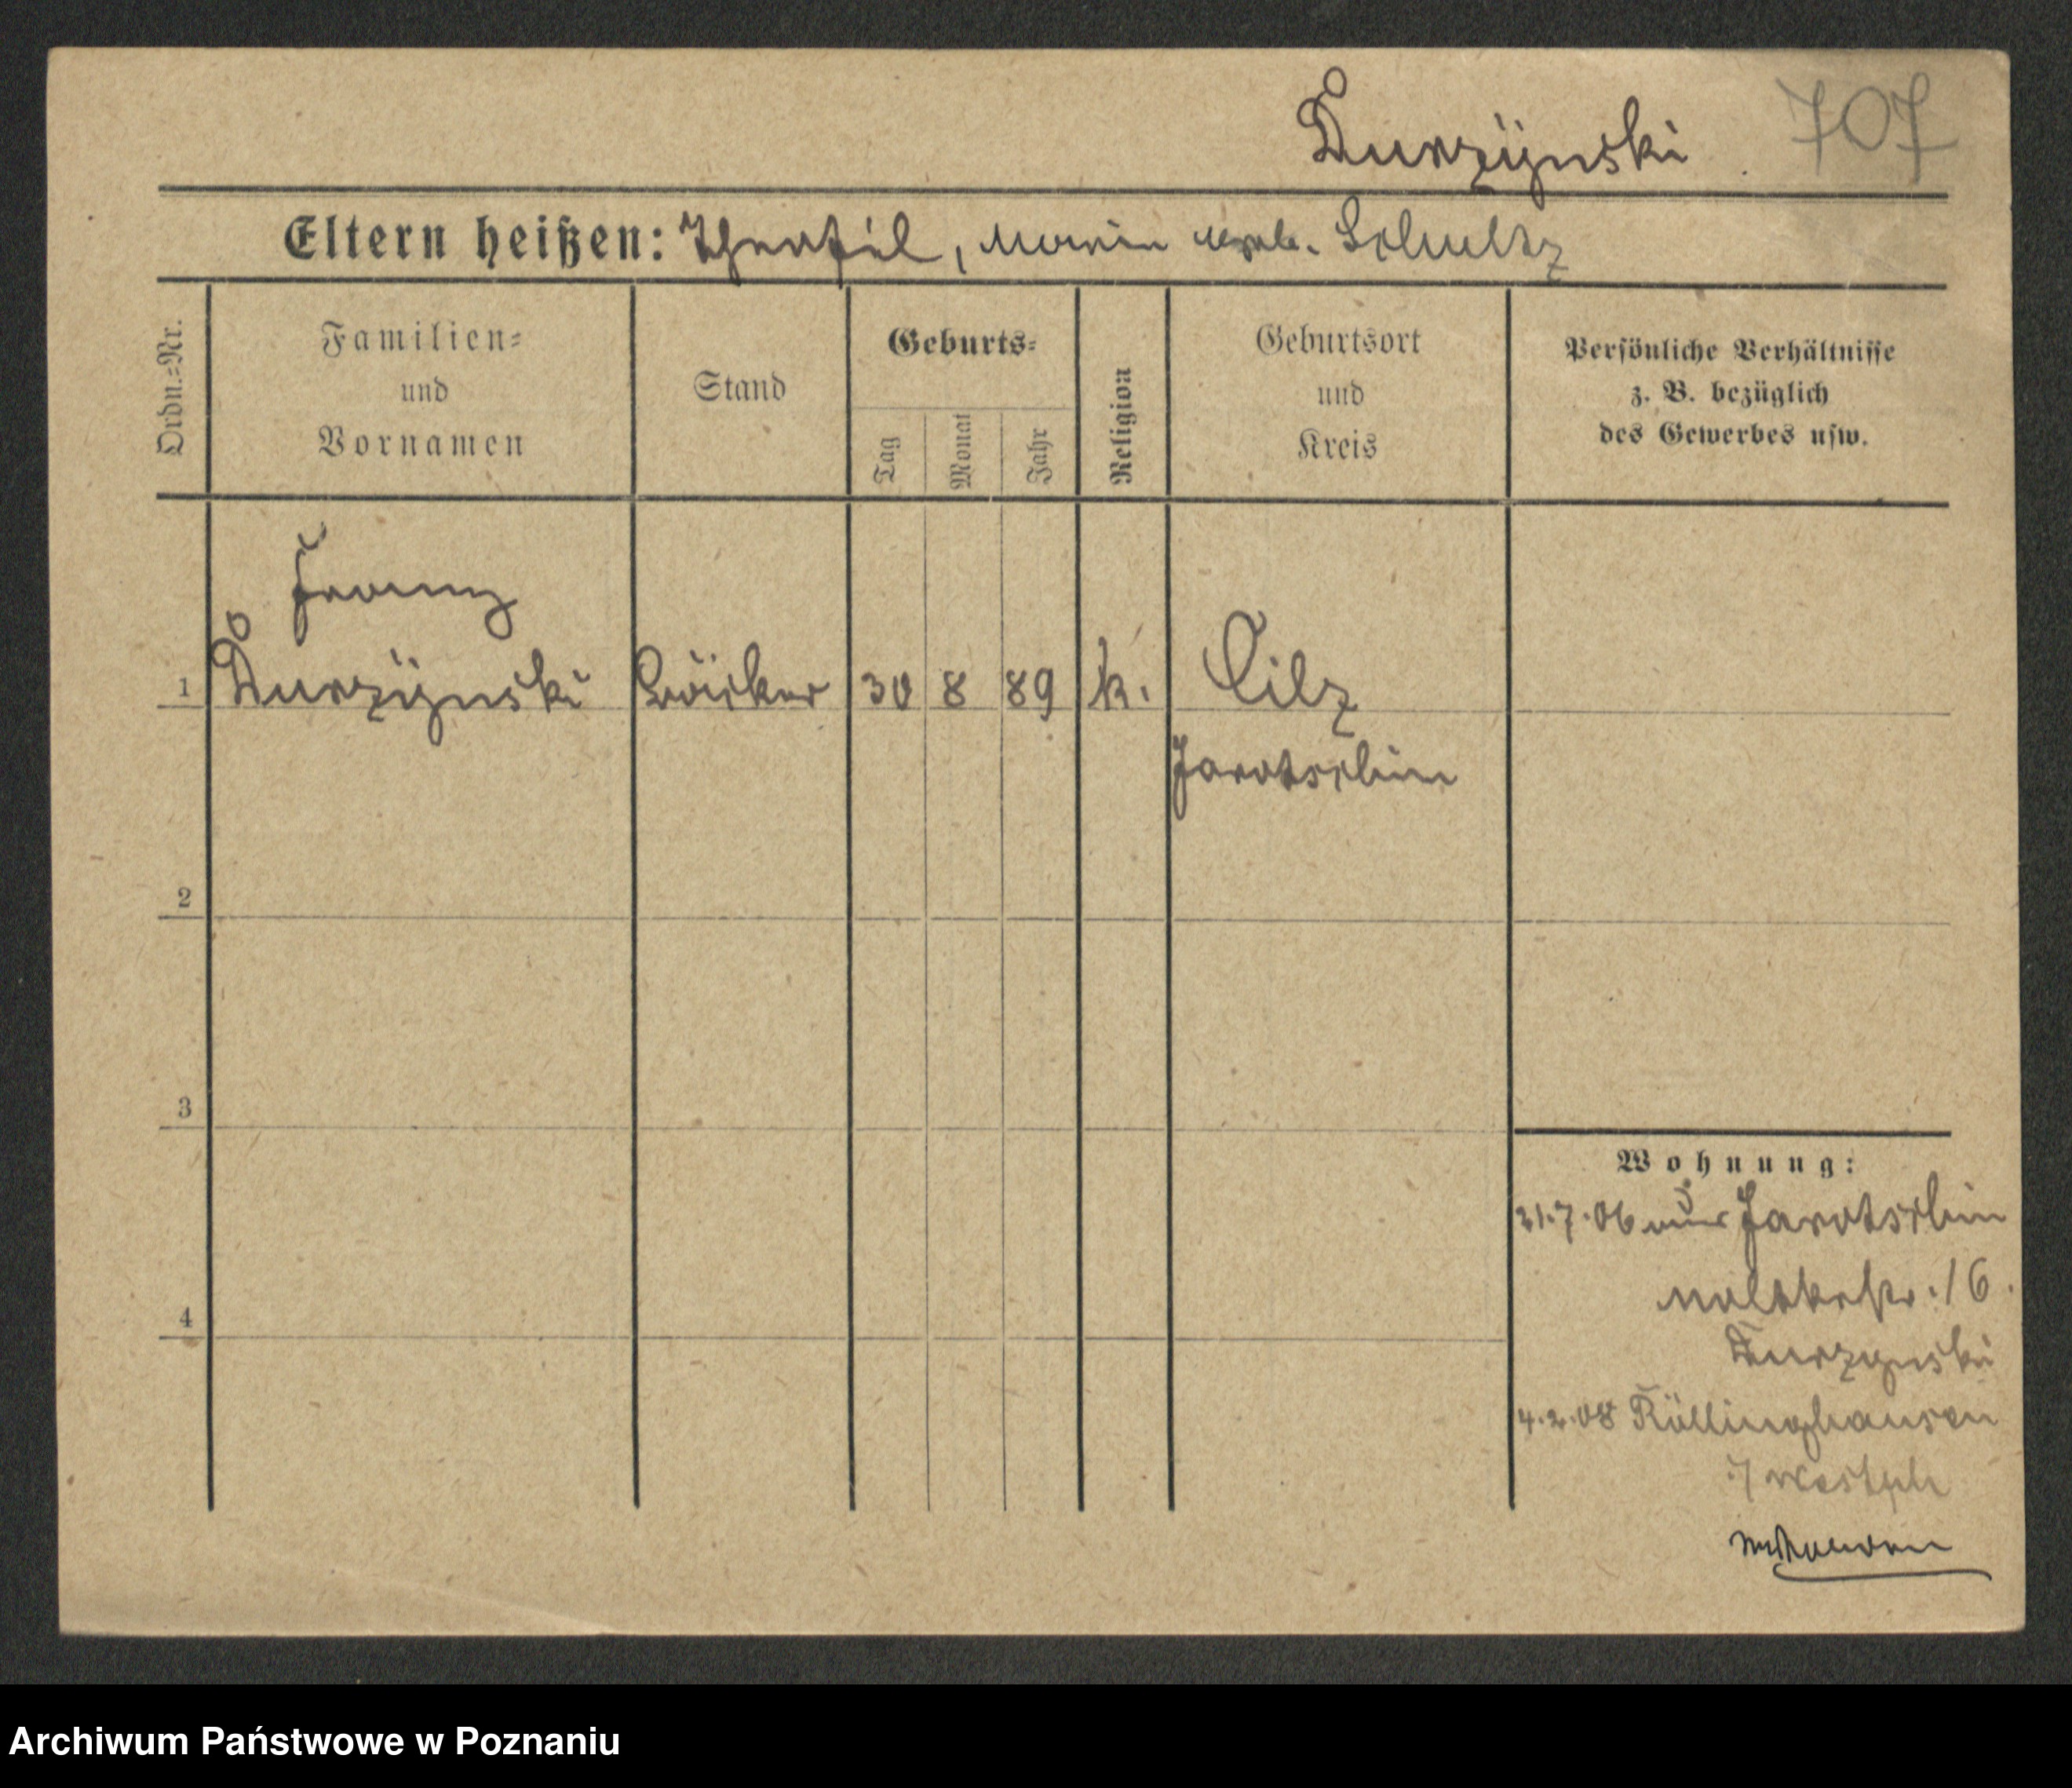 Durzÿnski 707
Eltern heißen: Theofil, Marie geb. Schultz
Ordn.=Nr.
Familien=
und
Vornamen
Stand
Geburts=
Tag
Monat
Jahr
Religion
Geburtsort
und
Kreis
Persönliche Verhältnisse
z. B. bezüglich
des Gewerbes usw.
Franz
1 Durzÿnski Bäcker 30 8 89 k. Cilz
Jarotschin
2
3
4
Wohnung:
31.7.06 aus Jarotschin
Moltkestr. 16.
Durzynski
4.2.08 Röllinghausen
i/ Westph
Archiwum Państwowe w Poznaniu